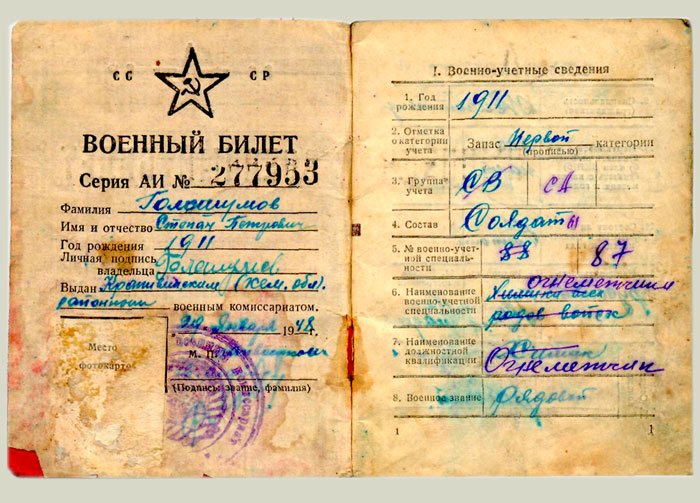 СС СР
ВОЕННЫЙ БИЛЕТ
Серия АИ № 277953
Фамилия Голошумов
Имя и отчество Степан Петрович
Год рождения 1911
Личная подпись
владельца Голошумов
Выдан Крапивинским (Кем. обл.)
районным военным комиссариатом.
29 января 1948 г.
Место
фотокарто
М. П.
(Подпись, звание, фамилия)
I. Военно-учетные сведения
1. Год
рождения 1911
2. Отметка
о категории
учета Запас Первой категории
(прописью)
3. Группа
учета СВ СА
4. Состав Солдаты
5. № военно-учет-
ной специаль-
ности 88 87
6. Наименование
военно-учетной
специальности Химики всех
родов войск
огнеметчики
7. Наименование
должностной
квалификации Химик
Огнеметчик
8. Военное звание рядовой
1 1